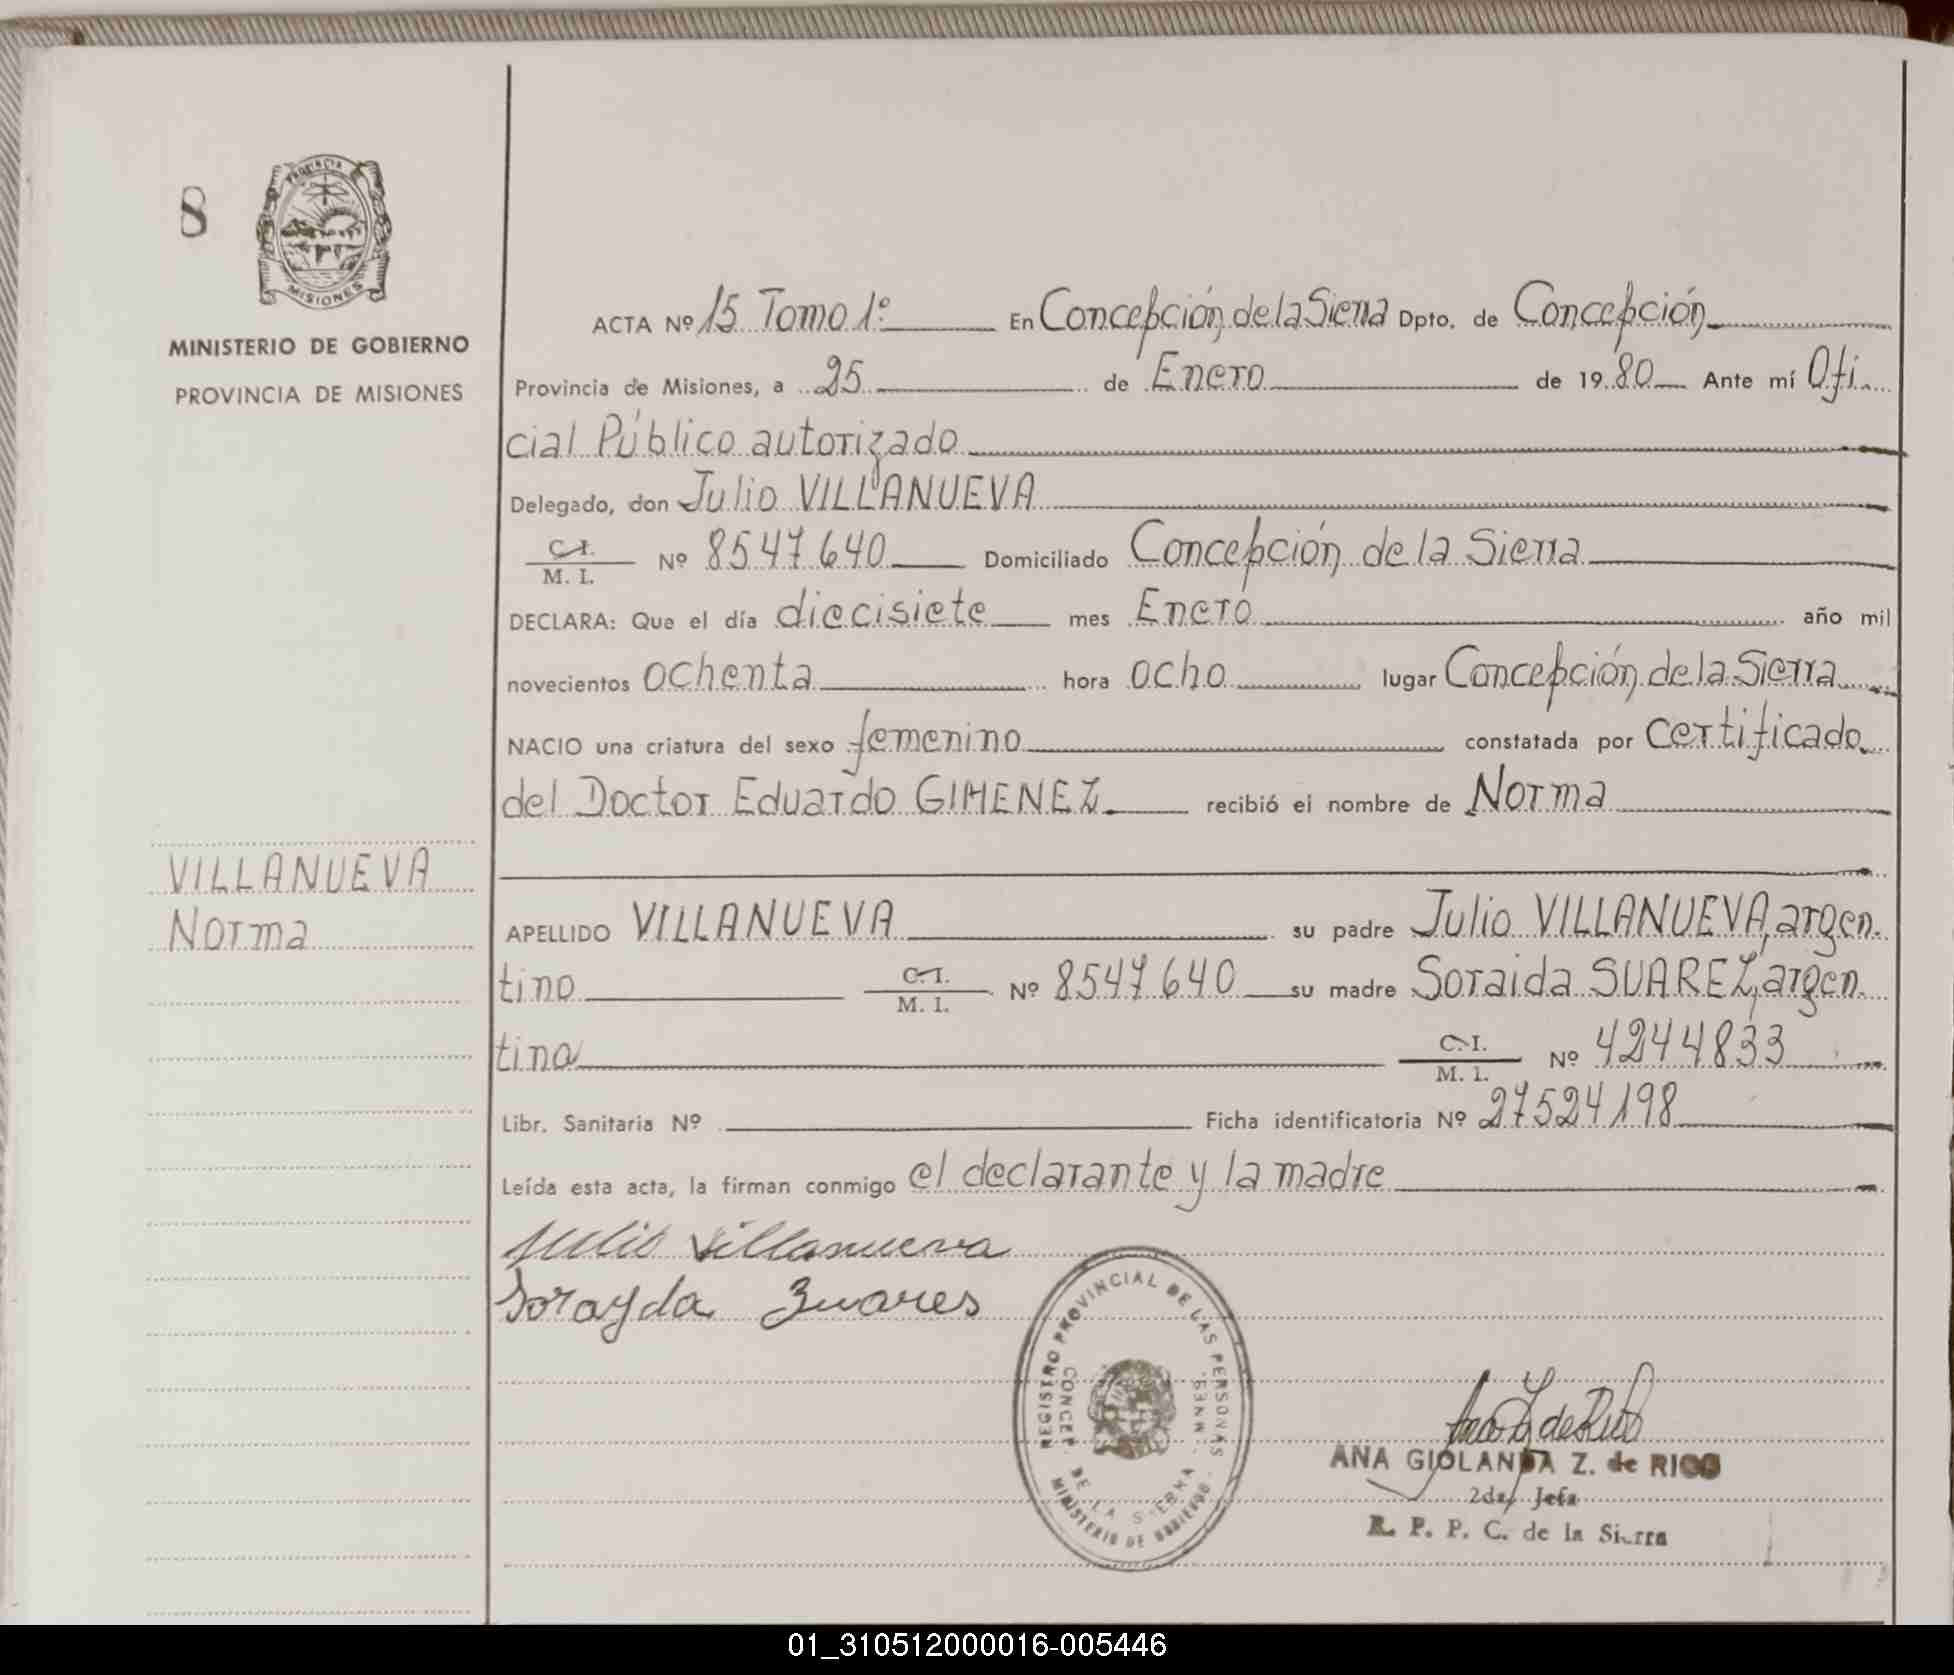 8
PROVINCIA
MISIONES
MINISTERIO DE GOBIERNO
PROVINCIA DE MISIONES
VILLANUEVA
Norma
ACTA Nº 15 Tomo 1º En Concepción de la Sierra Dpto. de Concepción
Provincia de Misiones, a 25 de Enero de 1980 Ante mí Ofi
cial Público autorizado
Delegado, don Julio VILLANUEVA
C.I. M. I. Nº 8547640 Domiciliado Concepción de la Sierra
DECLARA: Que el día diecisiete mes Enero año mil
novecientos ochenta hora ocho lugar Concepción de la Sierra
NACIO una criatura del sexo femenino constatada por certificado
del Doctor Eduardo GIMENEZ recibió el nombre de Norma
APELLIDO VILLANUEVA su padre Julio VILLANUEVA, argen
tino C.I. M. I. Nº 8547640 su madre Soraida SUAREZ, argen
tina C.I. M. I. Nº 4244833
Libr. Sanitaria Nº Ficha identificatoria Nº 27524198
Leída esta acta, la firman conmigo el declarante y la madre
Julio Villanueva
Sorayda Zuares
REGISTRO PROVINCIAL DE LAS PERSONAS
CONCEP. DE LA SIERRA MNES.
MINISTERIO DE GOBIERNO
Ana Z de Rico
ANA GIOLANDA Z. de RICO
2da. Jefa
R. P. P. C. de la Sierra
01_310512000016-005446